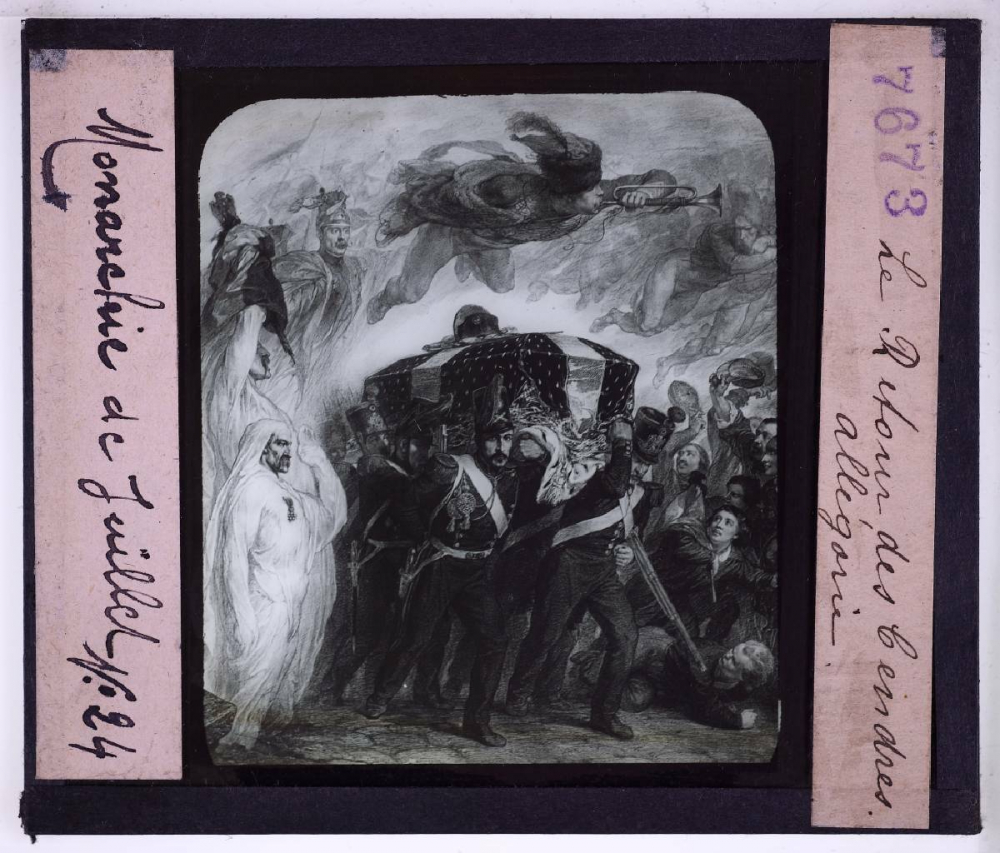 Monarchie de Juillet No. 24
7673 Le Retour des Cendres.
allégorie.